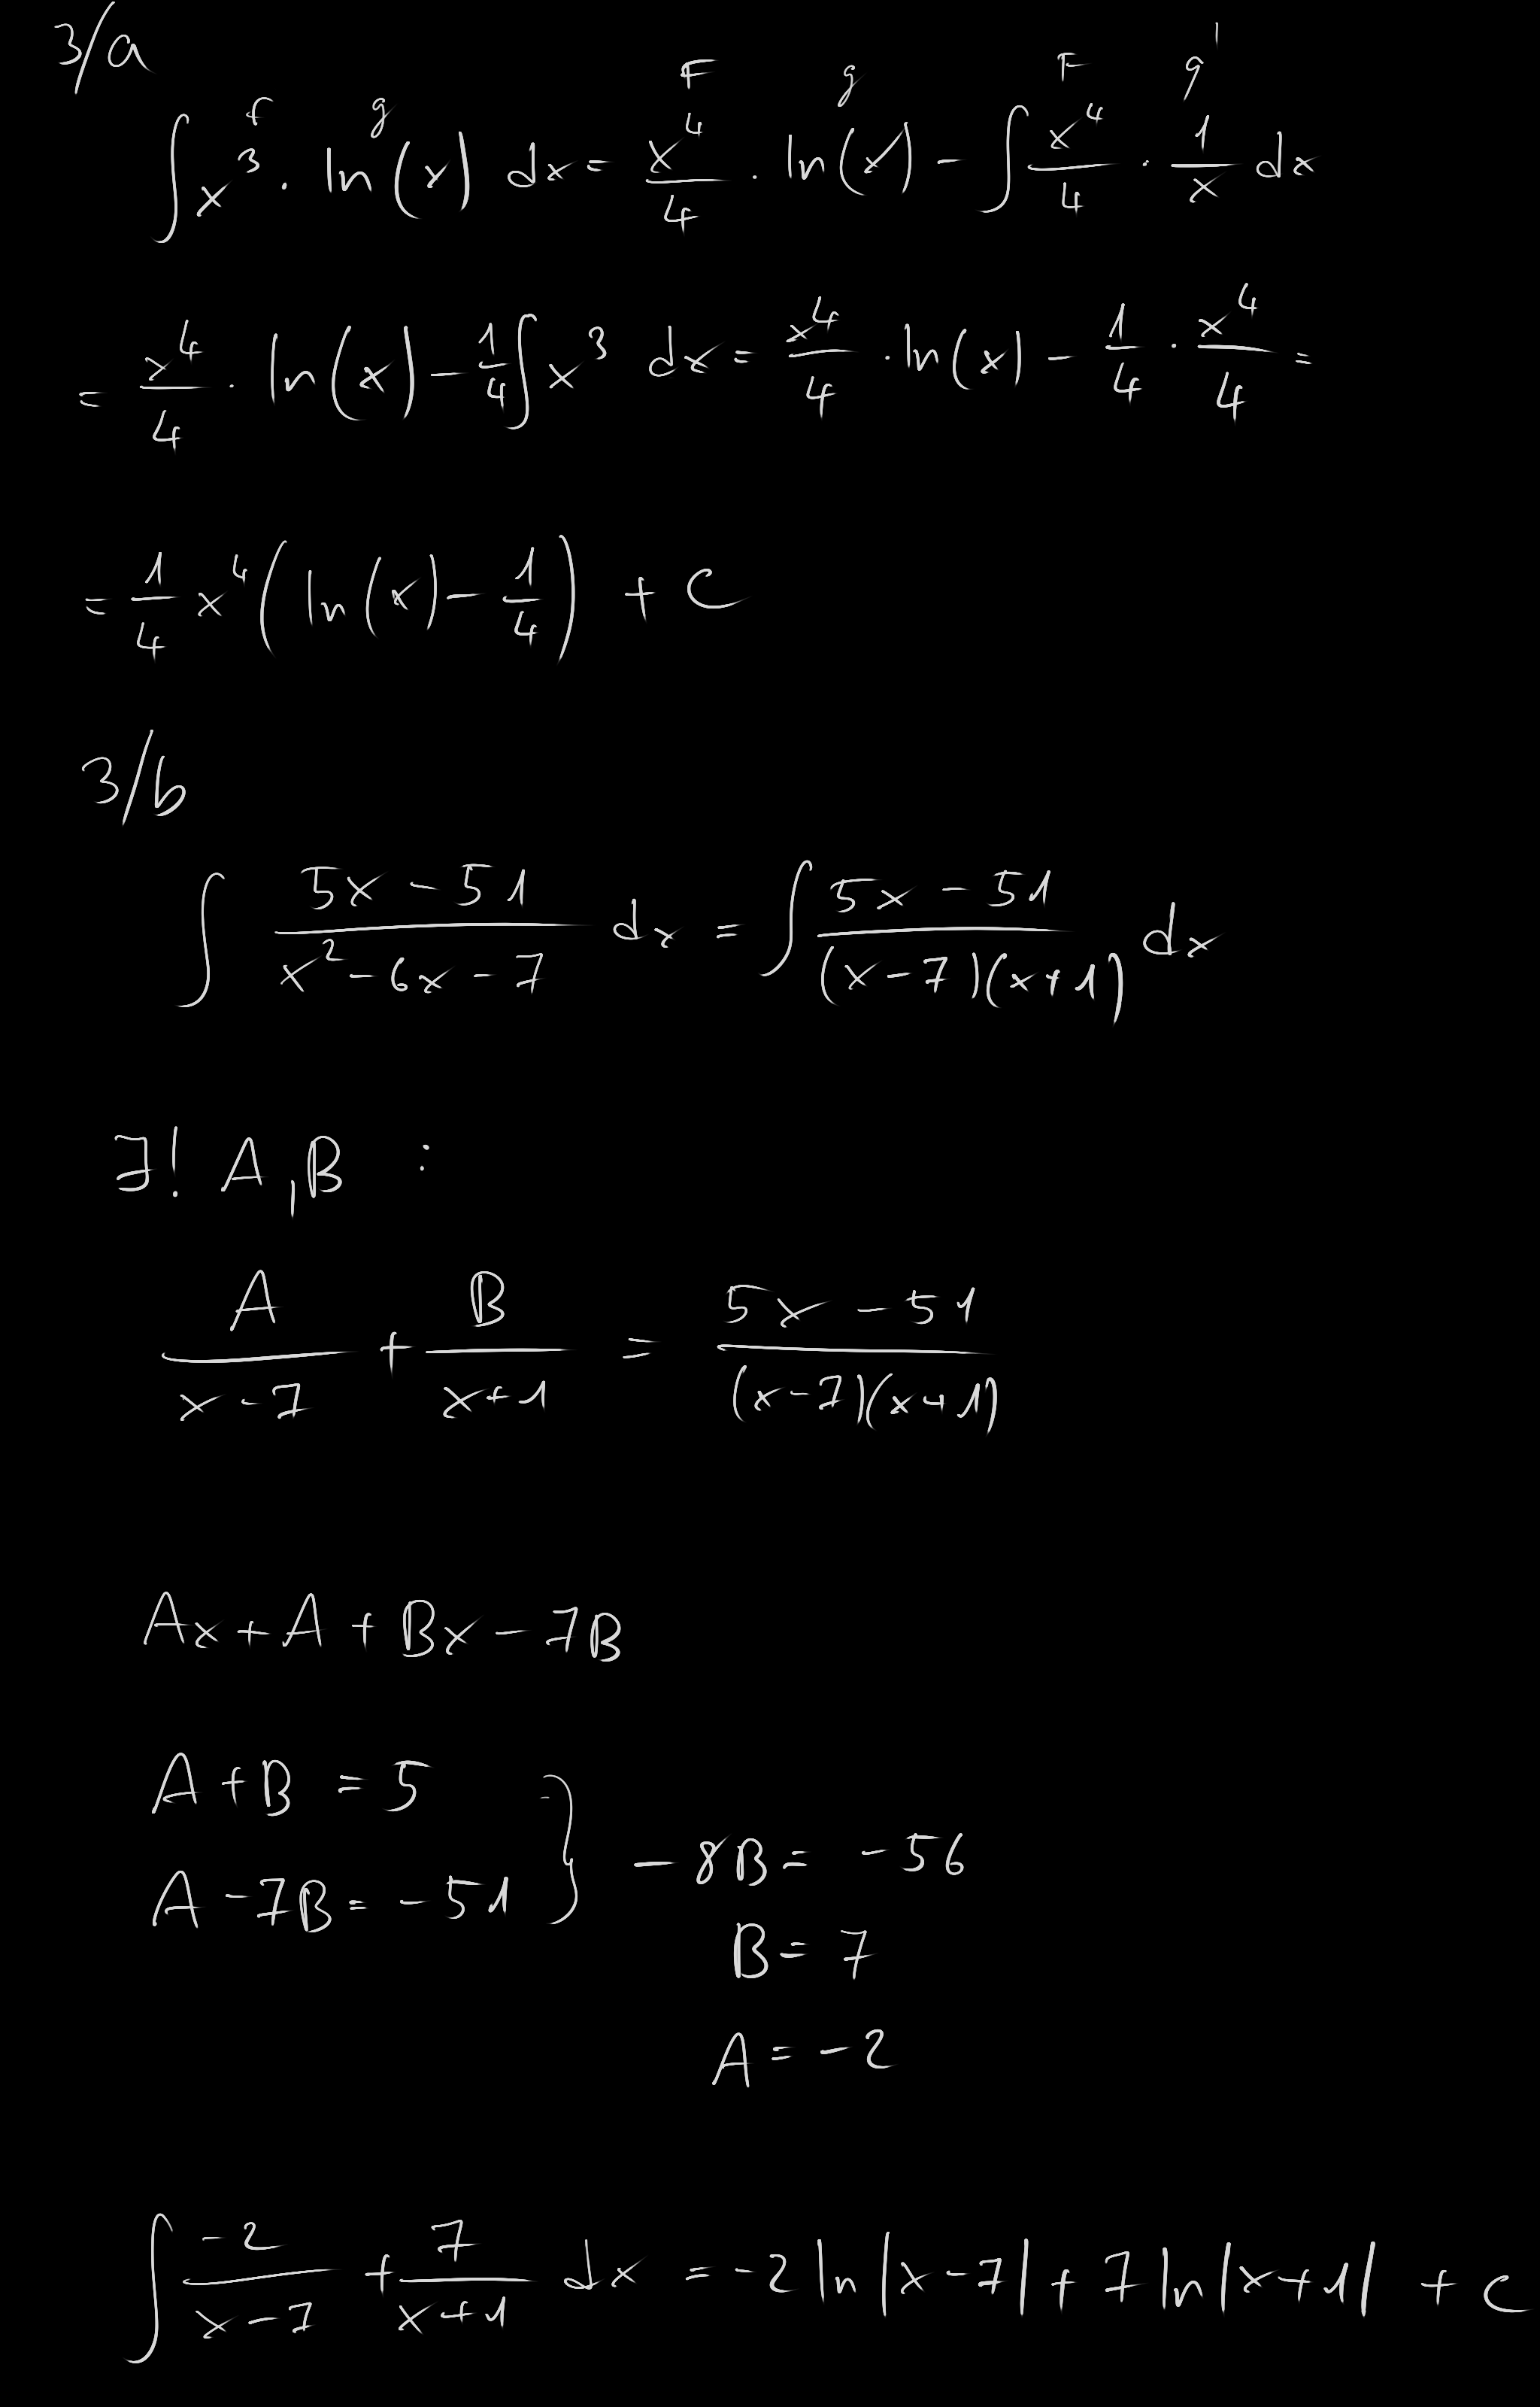 3/a
f g F g F g'
∫ x³ · ln(x) dx = x⁴/4 · ln(x) - ∫ x⁴/4 · 1/x dx
= x⁴/4 · ln(x) - 1/4 ∫ x³ dx = x⁴/4 · ln(x) - 1/4 · x⁴/4 =
= 1/4 x⁴ ( ln(x) - 1/4 ) + C
3/b
∫ (5x - 51)/(x² - 6x - 7) dx = ∫ (5x - 51)/((x-7)(x+1)) dx
∃! A,B :
A/(x-7) + B/(x+1) = (5x - 51)/((x-7)(x+1))
Ax + A + Bx - 7B
A + B = 5
A - 7B = -51 } - 8B = -56
B = 7
A = -2
∫ -2/(x-7) + 7/(x+1) dx = -2 ln|x-7| + 7 ln|x+1| + C